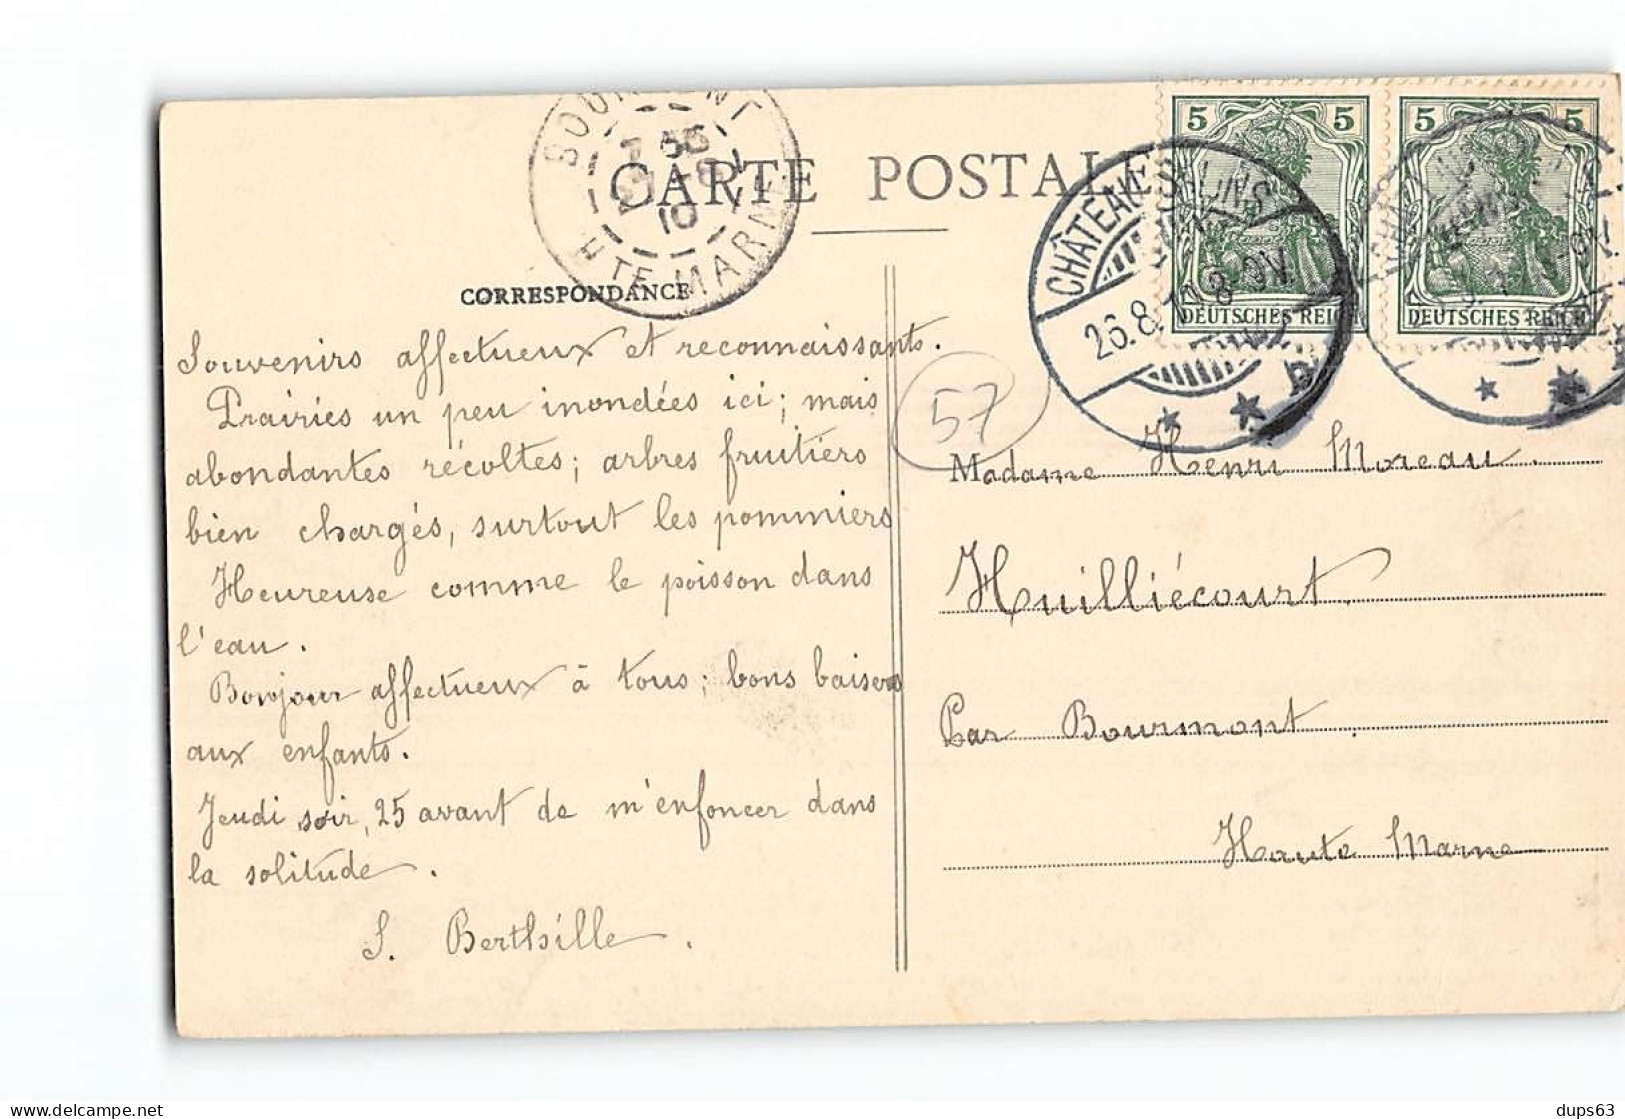 BOURMONT
7 35
10
HTE-MARNE
CARTE POSTALE
CORRESPONDANCE
5 5
5 5
DEUTSCHES REICH
DEUTSCHES REICH
CHÂTEAU-SALINS
26.8.10. 8-9V.
57
Souvenirs affectueux et reconnaissants.
Prairies un peu inondées ici; mais
abondantes récoltes; arbres fruitiers
bien chargés, surtout les pommiers
Heureuse comme le poisson dans
l'eau.
Bonjour affectueux à tous; bons baisers
aux enfants.
Jeudi soir, 25 avant de m'enfoncer dans
la solitude.
S. Berthille.
Madame Henri Moreau.
Huilliécourt
Par Bourmont.
Haute Marne
dups63